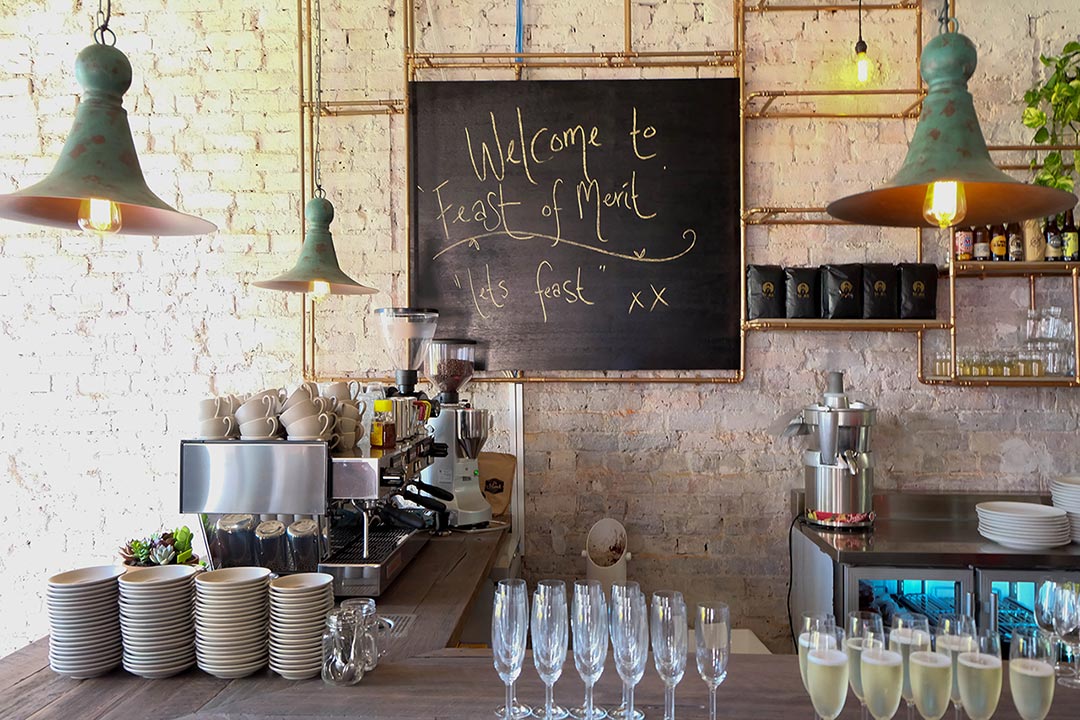 Welcome to
Feast of Merit
"lets feast" xx